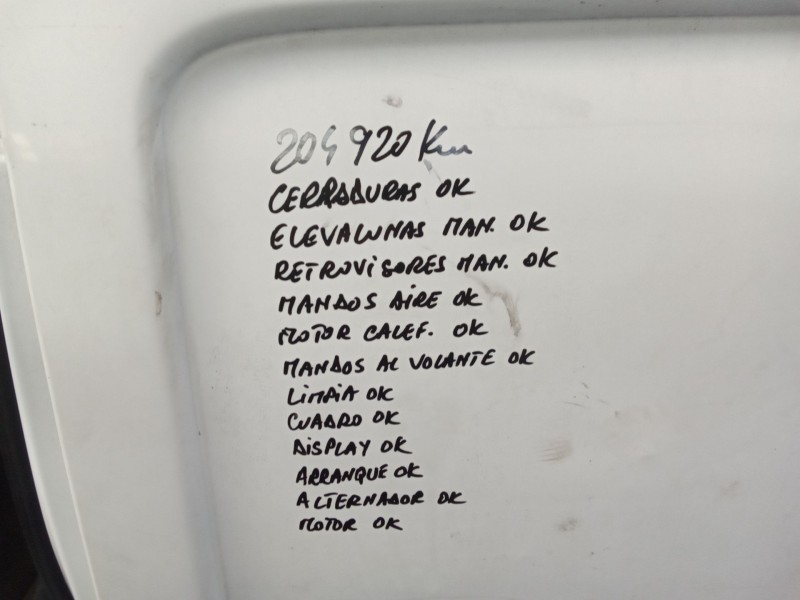 204920 Km
CERRADURAS OK
ELEVALUNAS MAN. OK
RETROVISORES MAN. OK
MANDOS AIRE OK
MOTOR CALEF. OK
MANDOS AL VOLANTE OK
LIMPIA OK
CUADRO OK
DISPLAY OK
ARRANQUE OK
ALTERNADOR OK
MOTOR OK